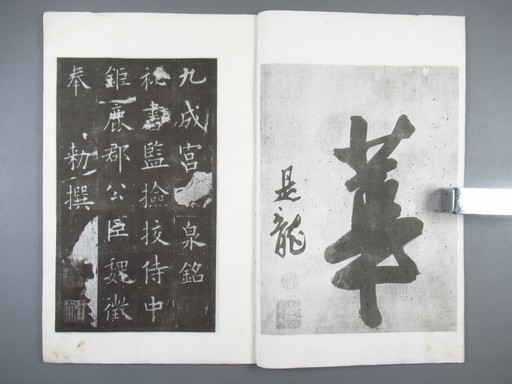 華
是龍
九成宮泉銘
祕書監撿挍侍中
鉅鹿郡公臣魏徵
奉勑撰